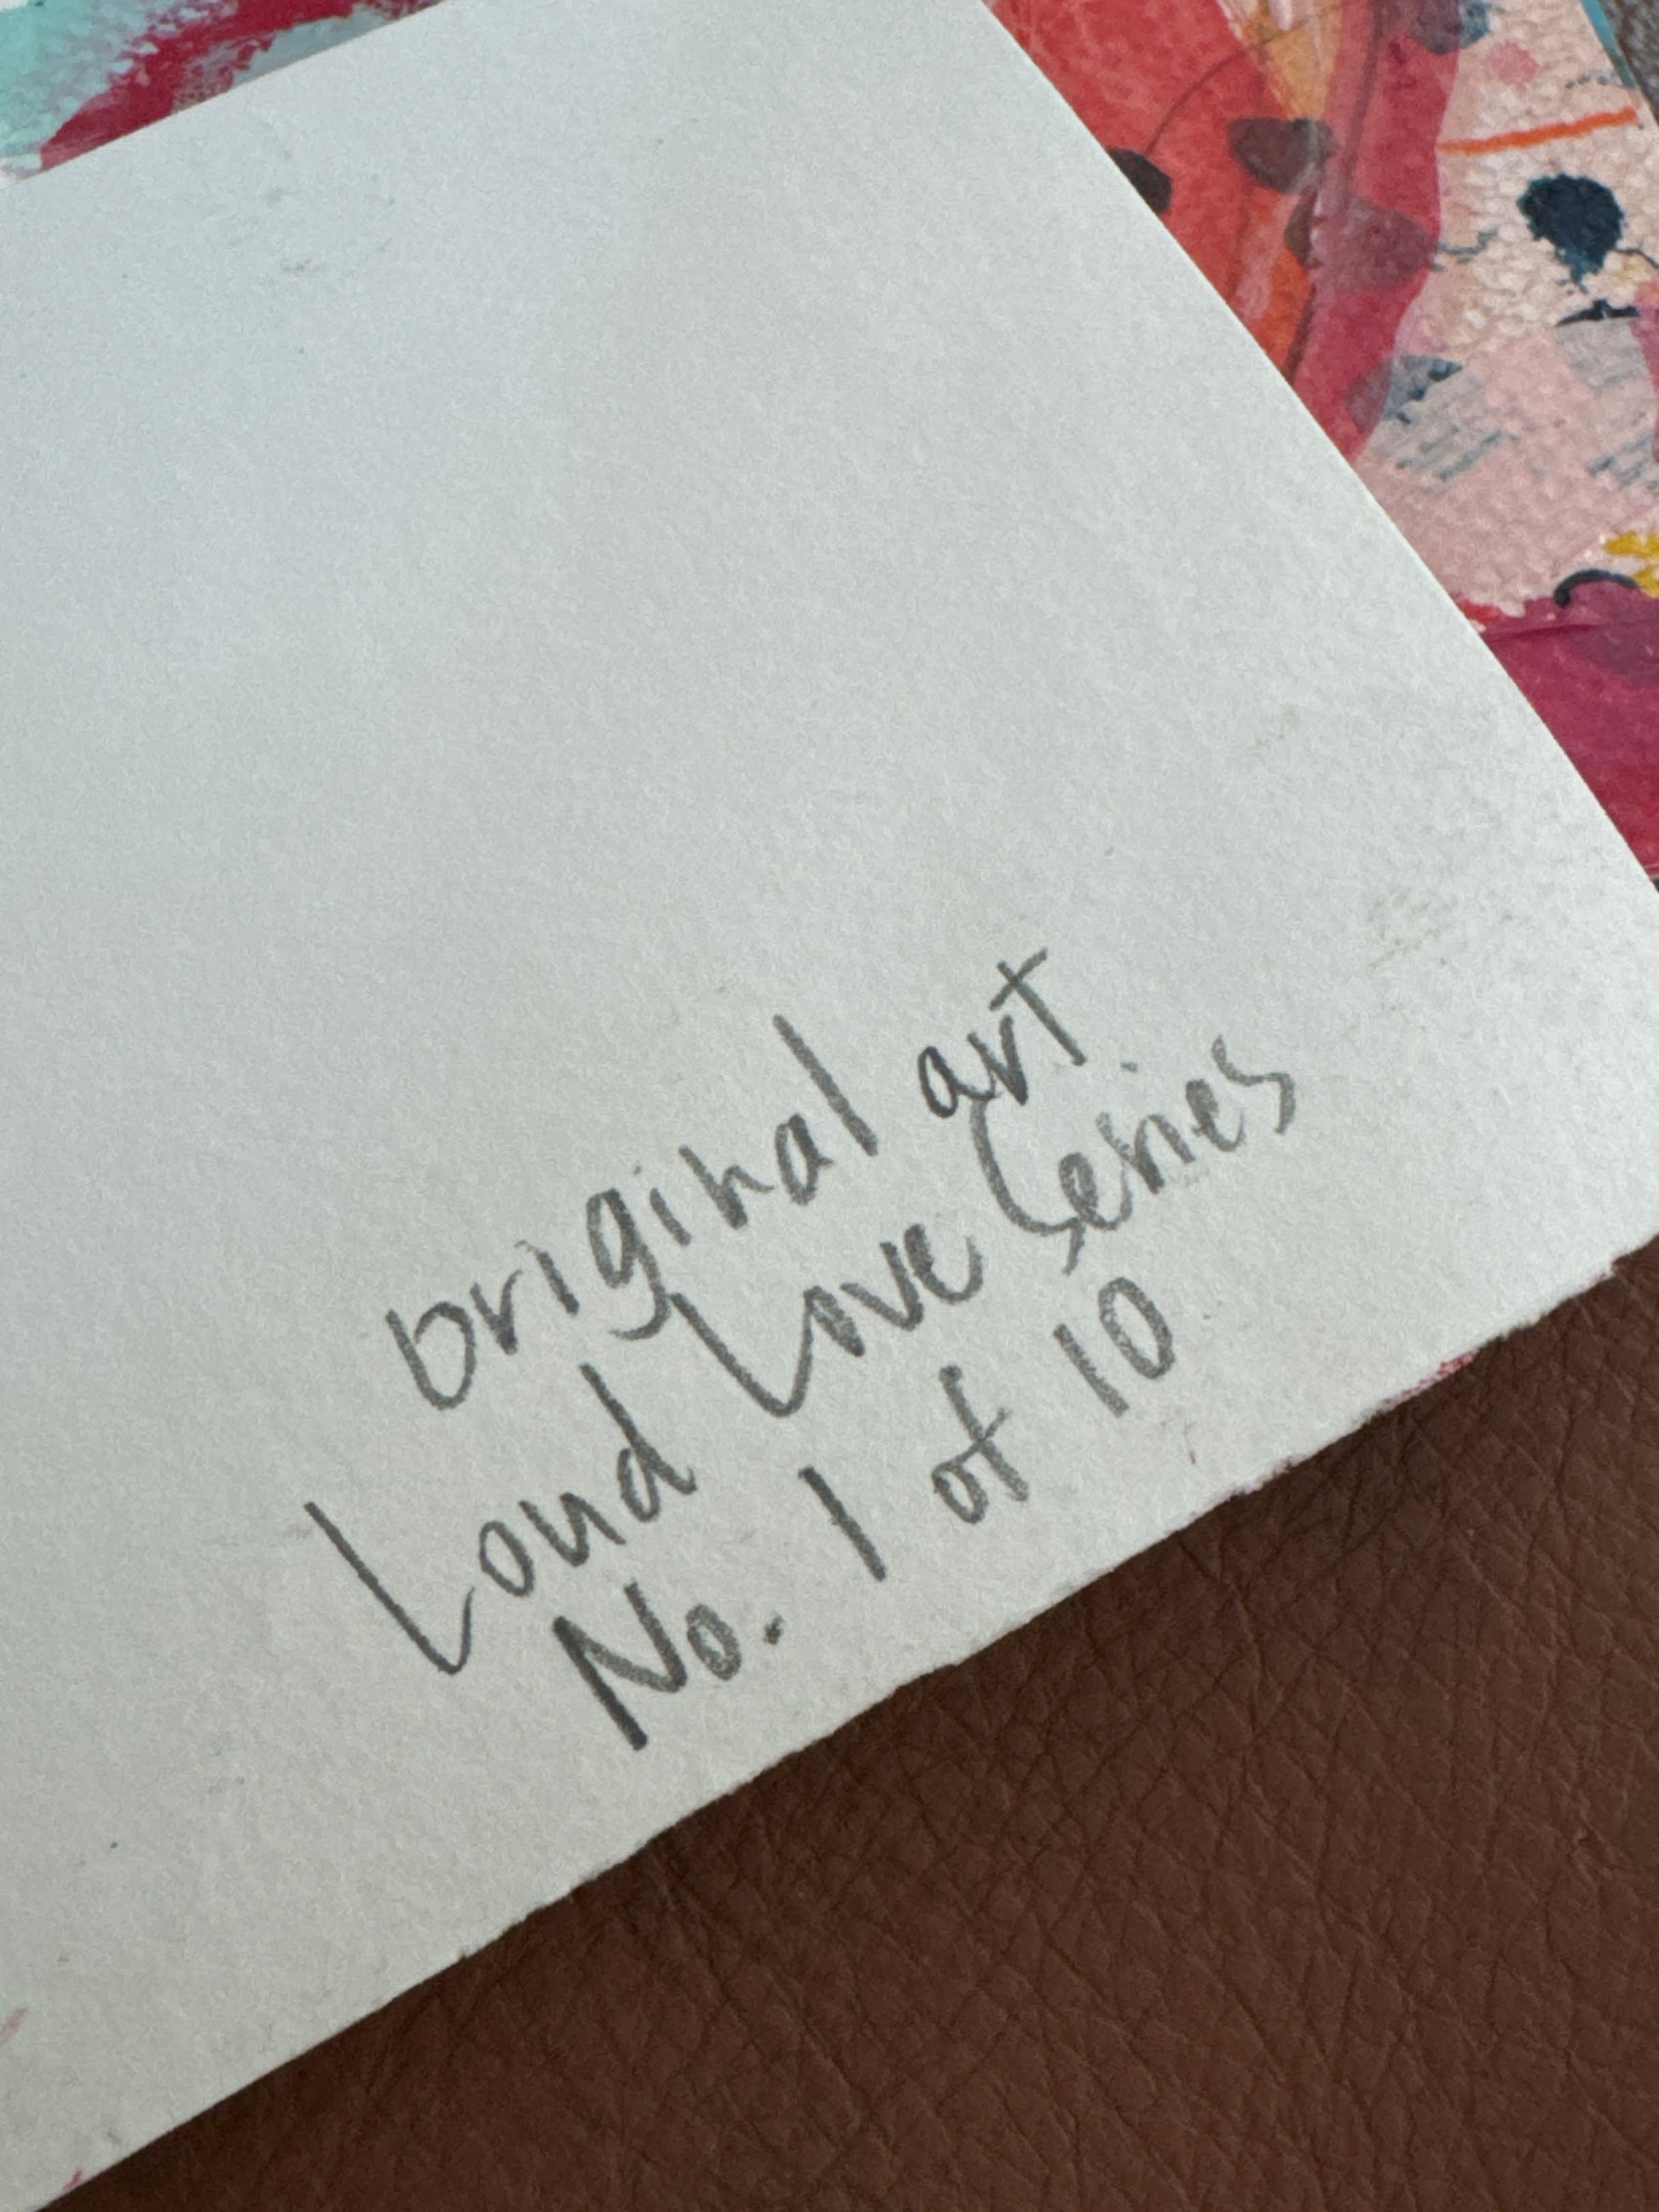 original art
Loud Love Series
No. 1 of 10